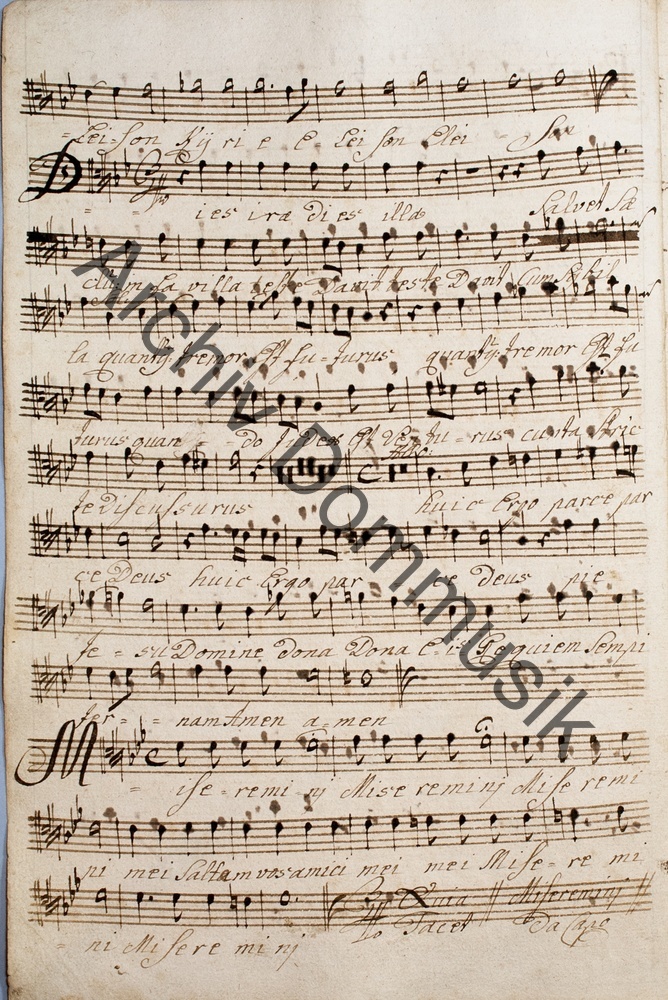 = Lei-son Kÿ ri e e Lei son Elei - Son
Dies iræ dies illa Salvet Sæ
clum fa villa teste Davit teste Davit Cum Sibil
la quant9 tremor Est fu = turus quant9 tremor Est fu
turus quan - do Judex Est Ventu = rus cuncta stric
te discussurus huic Ergo parce par
ce Deus huic Ergo par ce deus pie
Je = su Domine dona Dona E = is Requiem Sempi
ter = = nam Amen a = men
Mise = remi nj Mise reminj Mise remi
ni mei Saltem vos amici mei mei Mise = re mi
= ni Misere mi nj
Tacet
Misereminj
Da Capo
Archiv Dommusik